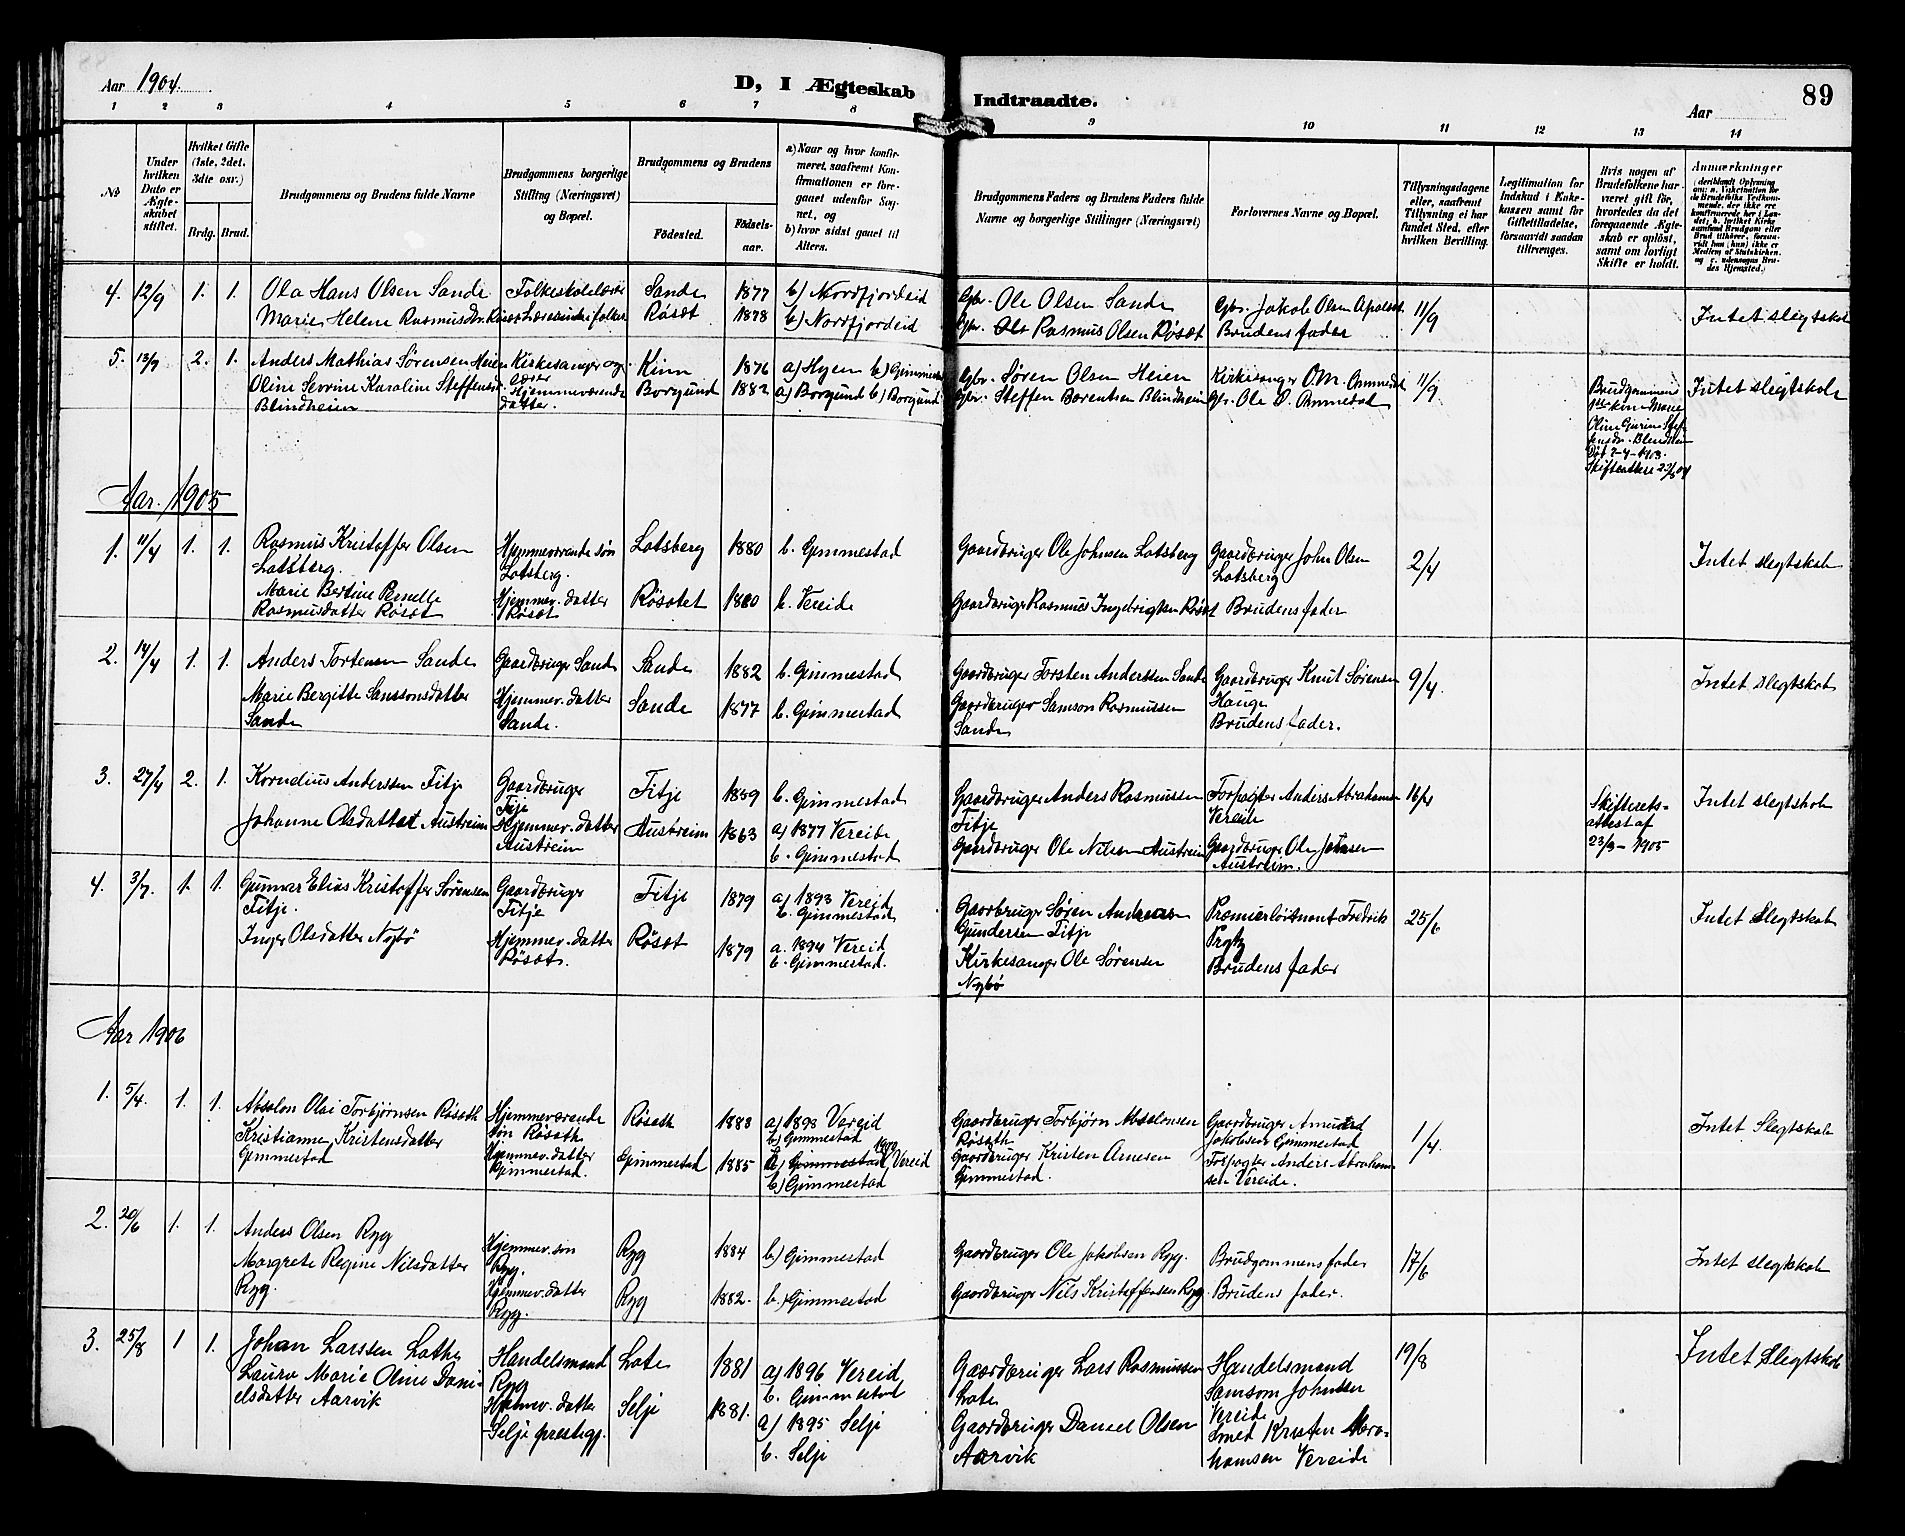 Aar 1904.
D, I Ægteskab Indtraadte.
Aar
89
1 2 3 4 5 6 7 8 9 10 11 12 13 14
№
Under hvilken Dato er Ægteskabet stiftet.
Hvilket Gifte (1ste, 2det, 3die osv.)
Brdg. Brud.
Brudgommens og Brudens fulde Navne
Brudgommens borgerlige Stilling (Næringsvei) og Bopæl.
Brudgommens og Brudens
Fødested.
Fødsels-aar.
a) Naar og hvor konfirmeret, saafremt Konfirmationen er foregaaet udenfor Sognet, og
b) hvor sidst gaaet til Alters.
Brudgommens Faders og Brudens Faders fulde Navne og borgerlige Stillinger (Næringsvei)
Forlovernes Navne og Bopæl.
Tillysningsdagene eller, saafremt Tillysning ei har fundet Sted, efter hvilken Bevilling.
Legitimation for Indskud i Enkekassen samt for Giftetilladelse, forsaavidt saadan tiltrænges.
Hvis nogen af Brudefolkene har været gift før, hvorledes da det foregaaende Ægteskab er opløst, samt om lovligt Skifte er holdt.
Anmærkninger
4. 12/9 1. 1. Ola Hans Olsen Sande Folkeskolelærer Sande 1877 b) Nordfjordeid Gbr. Ole Olsen Sande Gbr. Jakob Olsen Apalset 11/9 Intet slegtskab
Marie Helene Rasmusdtr. Røset Røset 1878 b) Nordfjordeid Gbr. Ole Rasmus Olsen Røset Brudens fader
5. 13/9 2. 1. Anders Mathias Sørensen Heien Kirkesanger og Kinn 1876 a) Hyen b) Gimmestad Gbr. Søren Olsen Heien Kirkesanger O.M. Ommedal 11/9 Brudgommens Intet slegtskab
Oline Severine Karoline Steffensdr. lærer Hjemmeværende Borgund 1882 a) Borgund b) Borgund Gbr. Steffen Berentsen Blindheim Gbr. Ole O. Ommedal 1ste kone Marie
Blindheim datter. Oline Gurine Stef-
fensdr. Blindheim
Død 7-4-1903.
Aar. 1905
1. 11/4 1. 1. Rasmus Kristoffer Olsen Hjemmeværende søn Lotsberg 1880 b. Gimmestad Gaardbruger Ole Johnsen Lotsberg Gaardbruger John Olsen 2/4 Intet slegtskab
Lotsberg. Lotsberg. Lotsberg
Marie Bertine Pernelle Hjemmev. datter Røsetet 1880 b. Vereide Gaardbruger Rasmus Ingebrigtsen Røset Brudens fader
Rasmusdatter Røset Røset
2. 14/4 1. 1. Anders Tortensen Sande Gaardbruger Sande Sande 1882 b. Gimmestad Gaardbruger Torsten Anderssen Sande Gaardbruger Knut Sørensen 9/4. Intet slegtskab
Marie Bergitte Samsonsdatter Hjemmev. datter Sande 1877 b. Gimmestad Gaardbruger Samson Rasmussen Hauge
Sande Sande. Sande Brudens fader.
3. 27/4 2. 1. Kornelius Anderssen Fitje Gaardbruger Fitje 1859 b. Gimmestad Gaardbruger Anders Rasmussen Forpagter Anders Abrahamsen 16/4 Skifterets- Intet slegtskab
Fitje Fitje Vereide attest af
Johanne Olsdatter Austreim Hjemmev. datter Austreim 1863 a) 1877 Vereide Gaardbruger Ole Nilsen Austreim Gaardbruger Ole Johnsen 23/3-1905
Austreim b. Gimmestad Austreim.
4. 3/7. 1. 1. Gunnar Elias Kristoffer Sørensen Gaardbruger Fitje 1879 a) 1893 Vereid Gaardbruger Søren Andreas Premierløitnant Fredrik 25/6 Intet Slegtskab
Fitje. Fitje b. Gimmestad Gundersen Fitje
Inger Olsdatter Nybø Hjemmev. datter Røset 1879 a. 1894 Vereid Kirkesanger Ole Sørensen Brudens fader
Røset. b. Gimmestad. Nybø
Aar 1906
1. 5/4. 1. 1. Absalon Olai Torbjørnsen Røseth Hjemmeværende Røseth 1883 a) 1893 Vereid Gaardbruger Torbjørn Absalonsen Gaardbruger Amund 1/4. Intet Slegtskab
søn Røseth b) Gimmestad Røseth Jakobsen Gimmestad
Kristianne Kristensdatter Hjemmev. datter Gimmestad 1885 a) 1900 Vereid Gaardbruger Kristen Arnesen Forpagter Anders Abraham-
Gimmestad Gimmestad. b) Gimmestad Gimmestad. sen Vereide.
2. 20/6 1. 1. Anders Olsen Ryg Hjemmev. søn Ryg 1884 b) Gimmestad Gaardbruger Ole Jakobsen Ryg. Brudgommens fader 17/6 Intet slegtskab
Ryg.
Margrete Regine Nilsdatter Hjemmev. datter Ryg 1882. b.) Gimmestad Gaardbruger Nils Kristoffersen Ryg Brudens fader.
Ryg. Ryg.
3. 25/8 1 1. Johan Larssen Lothe Handelsmand Lote 1881 a) 1896 Vereid Gaardbruger Lars Rasmussen Handelsmand 19/8 Intet Slegtskab
Ryg b. Gimmestad Lote Samsom Johnsen
Laura Marie Oline Dani- Hjemmev. datter Selje 1881. a) 1895 Selje Gaardbruger Daniel Olsen Vereide
elsdatter Aarvik Selje prestegj. b. Selje Aarvik Smed Kristen Abra-
hamsen Vereide